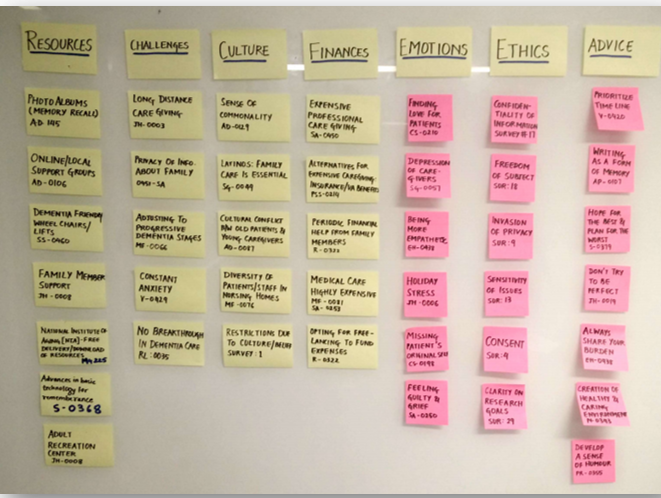 RESOURCES
PHOTO ALBUMS
(MEMORY RECALL)
ONLINE/LOCAL
SUPPORT GROUPS
AD-0106
DEMENTIA FRIENDLY
WHEEL CHAIRS/
LIFTS
SS-0460
FAMILY MEMBER
SUPPORT
JH-0008
NATIONAL INSTITUTE OF
AGING [NIA]-FREE
DELIVERY/DOWNLOAD
OF RESOURCES
Advances in basic
technology for
remembrance
S-0368
ADULT
RECREATION
CENTER
JH-0008
CHALLENGES
LONG DISTANCE
CARE GIVING
JH-0003
PRIVACY OF INFO.
ABOUT FAMILY
ADJUSTING TO
PROGRESSIVE
DEMENTIA STAGES
MF-0066
CONSTANT
ANXIETY
V-0429
NO BREAKTHROUGH
IN DEMENTIA CARE
RL:0035
CULTURE
SENSE OF
COMMONALITY
AD-0129
LATINOS: FAMILY
CARE IS ESSENTIAL
SG-0049
CULTURAL CONFLICT
B/W OLD PATIENTS &
YOUNG CAREGIVERS
AD-0087
DIVERSITY OF
PATIENTS/STAFF IN
NURSING HOMES
MF-0076
RESTRICTIONS DUE
TO CULTURE/
SURVEY:1
FINANCES
EXPENSIVE
PROFESSIONAL
CARE GIVING
SA-0450
ALTERNATIVES FOR
EXPENSIVE CAREGIVING
INSURANCE/VA BENEFITS
PERIODIC FINANCIAL
HELP FROM FAMILY
MEMBERS
MEDICAL CARE
HIGHLY EXPENSIVE
MF-0081
SA-0253
OPTING FOR FREE-
LANCING TO FUND
EXPENSES
R-0322
EMOTIONS
FINDING
LOVE FOR
PATIENTS
CS-0210
DEPRESSION
OF CARE-
GIVERS
SG-0057
BEING
MORE
EMPATHETIC
HOLIDAY
STRESS
JH-0006
MISSING
PATIENT'S
ORIGINAL SELF
FEELING
GUILTY &
GRIEF
SA-0250
ETHICS
CONFIDEN-
TIALITY OF
INFORMATION
SURVEY #17
FREEDOM
OF SUBJECT
SUR:18
INVASION
OF PRIVACY
SUR:9
SENSITIVITY
OF ISSUES
SUR:13
CONSENT
SUR:9
CLARITY ON
RESEARCH
GOALS
SUR:29
ADVICE
PRIORITIZE
TIME LINE
V-0420
WRITING
AS A FORM
OF MEMORY
HOPE FOR
THE BEST &
PLAN FOR THE
WORST
S-0379
DON'T TRY
TO BE
PERFECT
JH-0019
ALWAYS
SHARE YOUR
BURDEN
CREATION OF
HEALTHY &
CARING
ENVIRONMENT
DEVELOP
A SENSE
OF HUMOUR